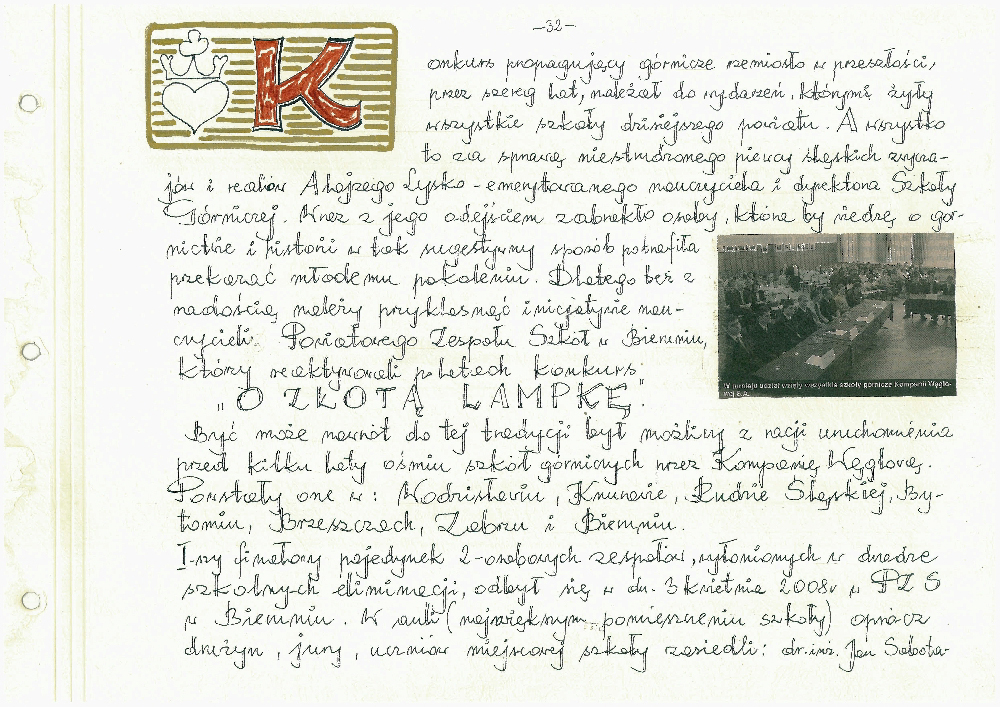 -32-
K
onkurs propagujący górnicze rzemiosło w przeszłości,
przez szereg lat, należał do wydarzeń, którymi żyły
wszystkie szkoły dzisiejszego powiatu. A wszystko
to za sprawą niestrudzonego piewcy śląskich zwycza-
jów i realiów Alojzego Lysko - emerytowanego nauczyciela i dyrektora Szkoły
Górniczej. Wraz z jego odejściem zabrakło osoby, która by wiedzę o gór-
nictwie i historii w tak sugestywny sposób potrafiła
przekazać młodemu pokoleniu. Dlatego też z
radością należy przyklasnąć inicjatywie nau-
czycieli Powiatowego Zespołu Szkół w Bieruniu,
który reaktywowali po latach konkurs
"O ZŁOTĄ LAMPKĘ".
W turnieju udział wzięły wszystkie szkoły górnicze Kompanii Węglo-
wej S.A.
Być może nawrót do tej tradycji był możliwy z racji uruchomienia
przed kilku laty ośmiu szkół górniczych przez Kompanię Węglową.
Powstały one w: Wodzisławiu, Knurowie, Rudzie Śląskiej, By-
tomiu, Brzeszczach, Zabrzu i Bieruniu.
I-szy finałowy pojedynek 2-osobowych zespołów, wyłonionych w drodze
szkolnych eliminacji, odbył się w dn. 3 kwietnia 2008r w PZS
w Bieruniu. W auli (największym pomieszczeniu szkoły) oprócz
drużyn, jury, uczniów miejscowej szkoły zasiedli: dr.inż. Jan Sabota-